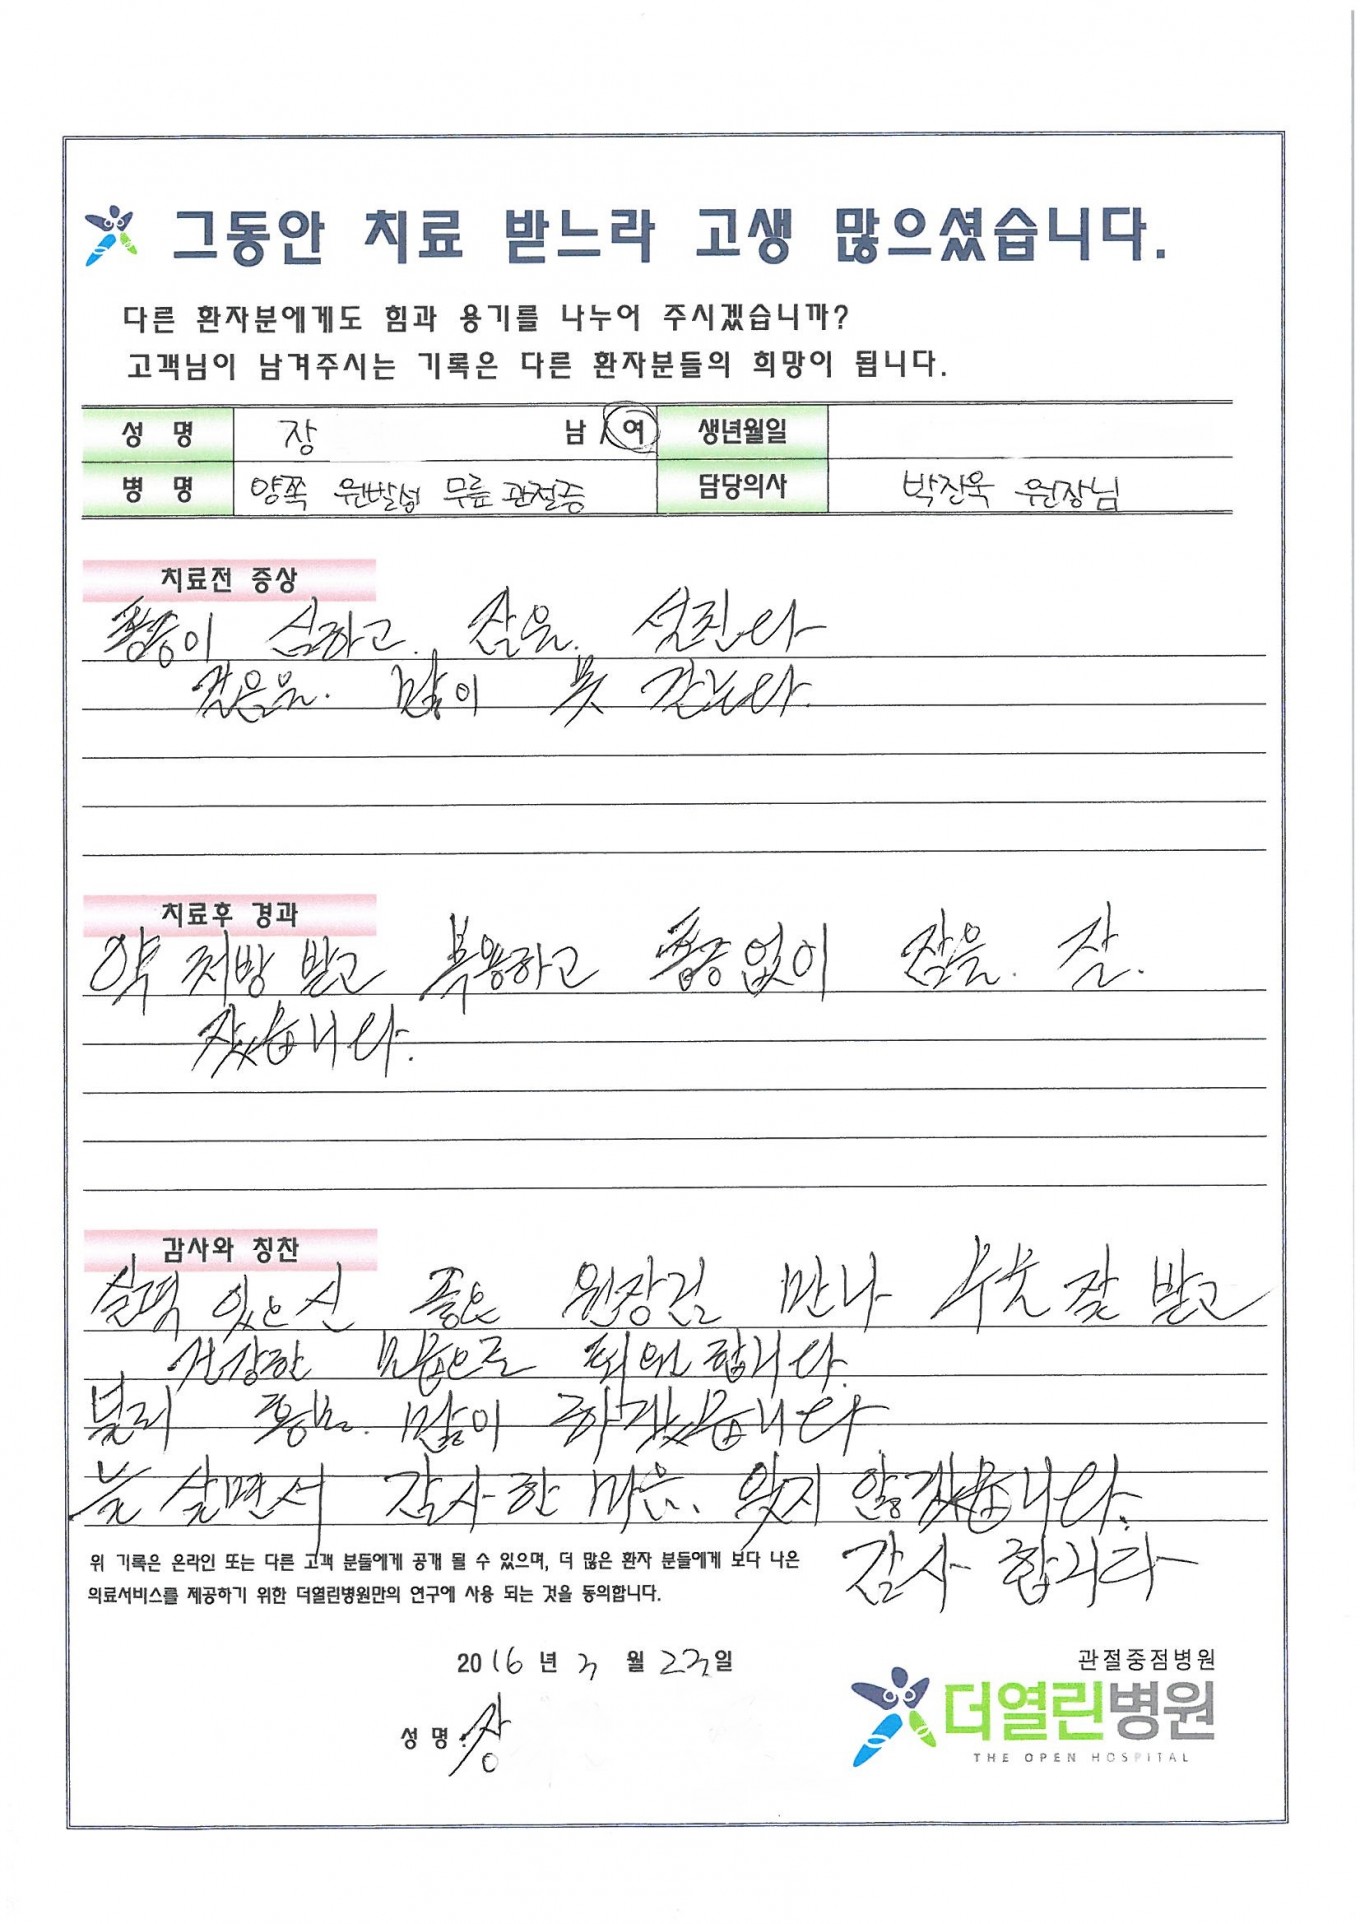 그동안 치료 받느라 고생 많으셨습니다.
다른 환자분에게도 힘과 용기를 나누어 주시겠습니까?
고객님이 남겨주시는 기록은 다른 환자분들의 희망이 됩니다.
성 명 장 남 / 여 생년월일
병 명 양쪽 원발성 무릎 관절증 담당의사 박진욱 원장님
치료전 증상
통증이 심하고 잠을
많이 못
치료후 경과
약 처방 받고 복용하고 통증없이 잠을 잘.
잤습니다.
감사와 칭찬
실력 좋은 만나 수술 잘 받고
건강한 모습으로 퇴원합니다.
많이 하겠습니다
늘 살면서 감사한 마음. 잊지 않겠습니다.
감사 합니다
위 기록은 온라인 또는 다른 고객 분들에게 공개 될 수 있으며, 더 많은 환자 분들에게 보다 나은
의료서비스를 제공하기 위한 더열린병원만의 연구에 사용 되는 것을 동의합니다.
2016 년 3 월 23일
성 명: 장
관절중점병원
더열린병원
THE OPEN HOSPITAL